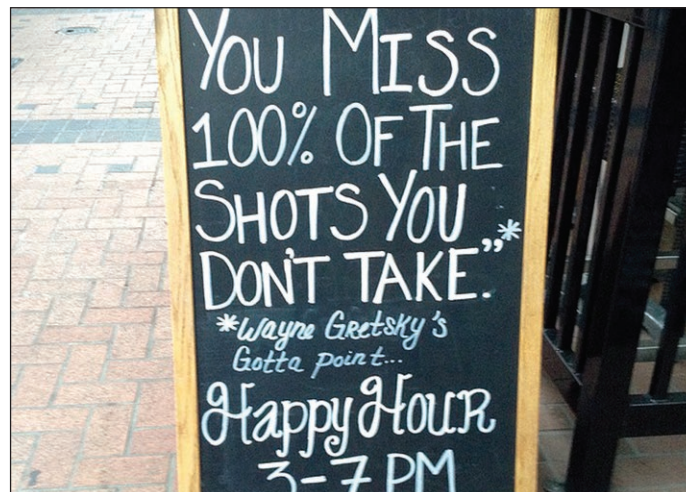 YOU MISS
100% OF THE
SHOTS YOU
DON'T TAKE."*
*Wayne Gretsky's
Gotta point...
Happy Hour
3-7 PM